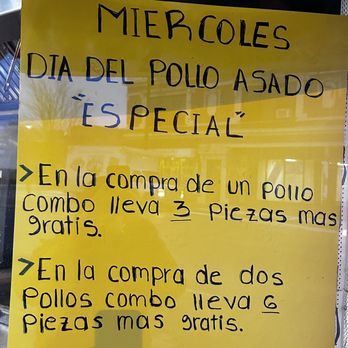 MIERCOLES
DIA DEL POLLO ASADO
"ESPECIAL"
> En la compra de un pollo
combo lleva 3 piezas mas
gratis.
> En la compra de dos
Pollos combo lleva 6
piezas mas gratis.